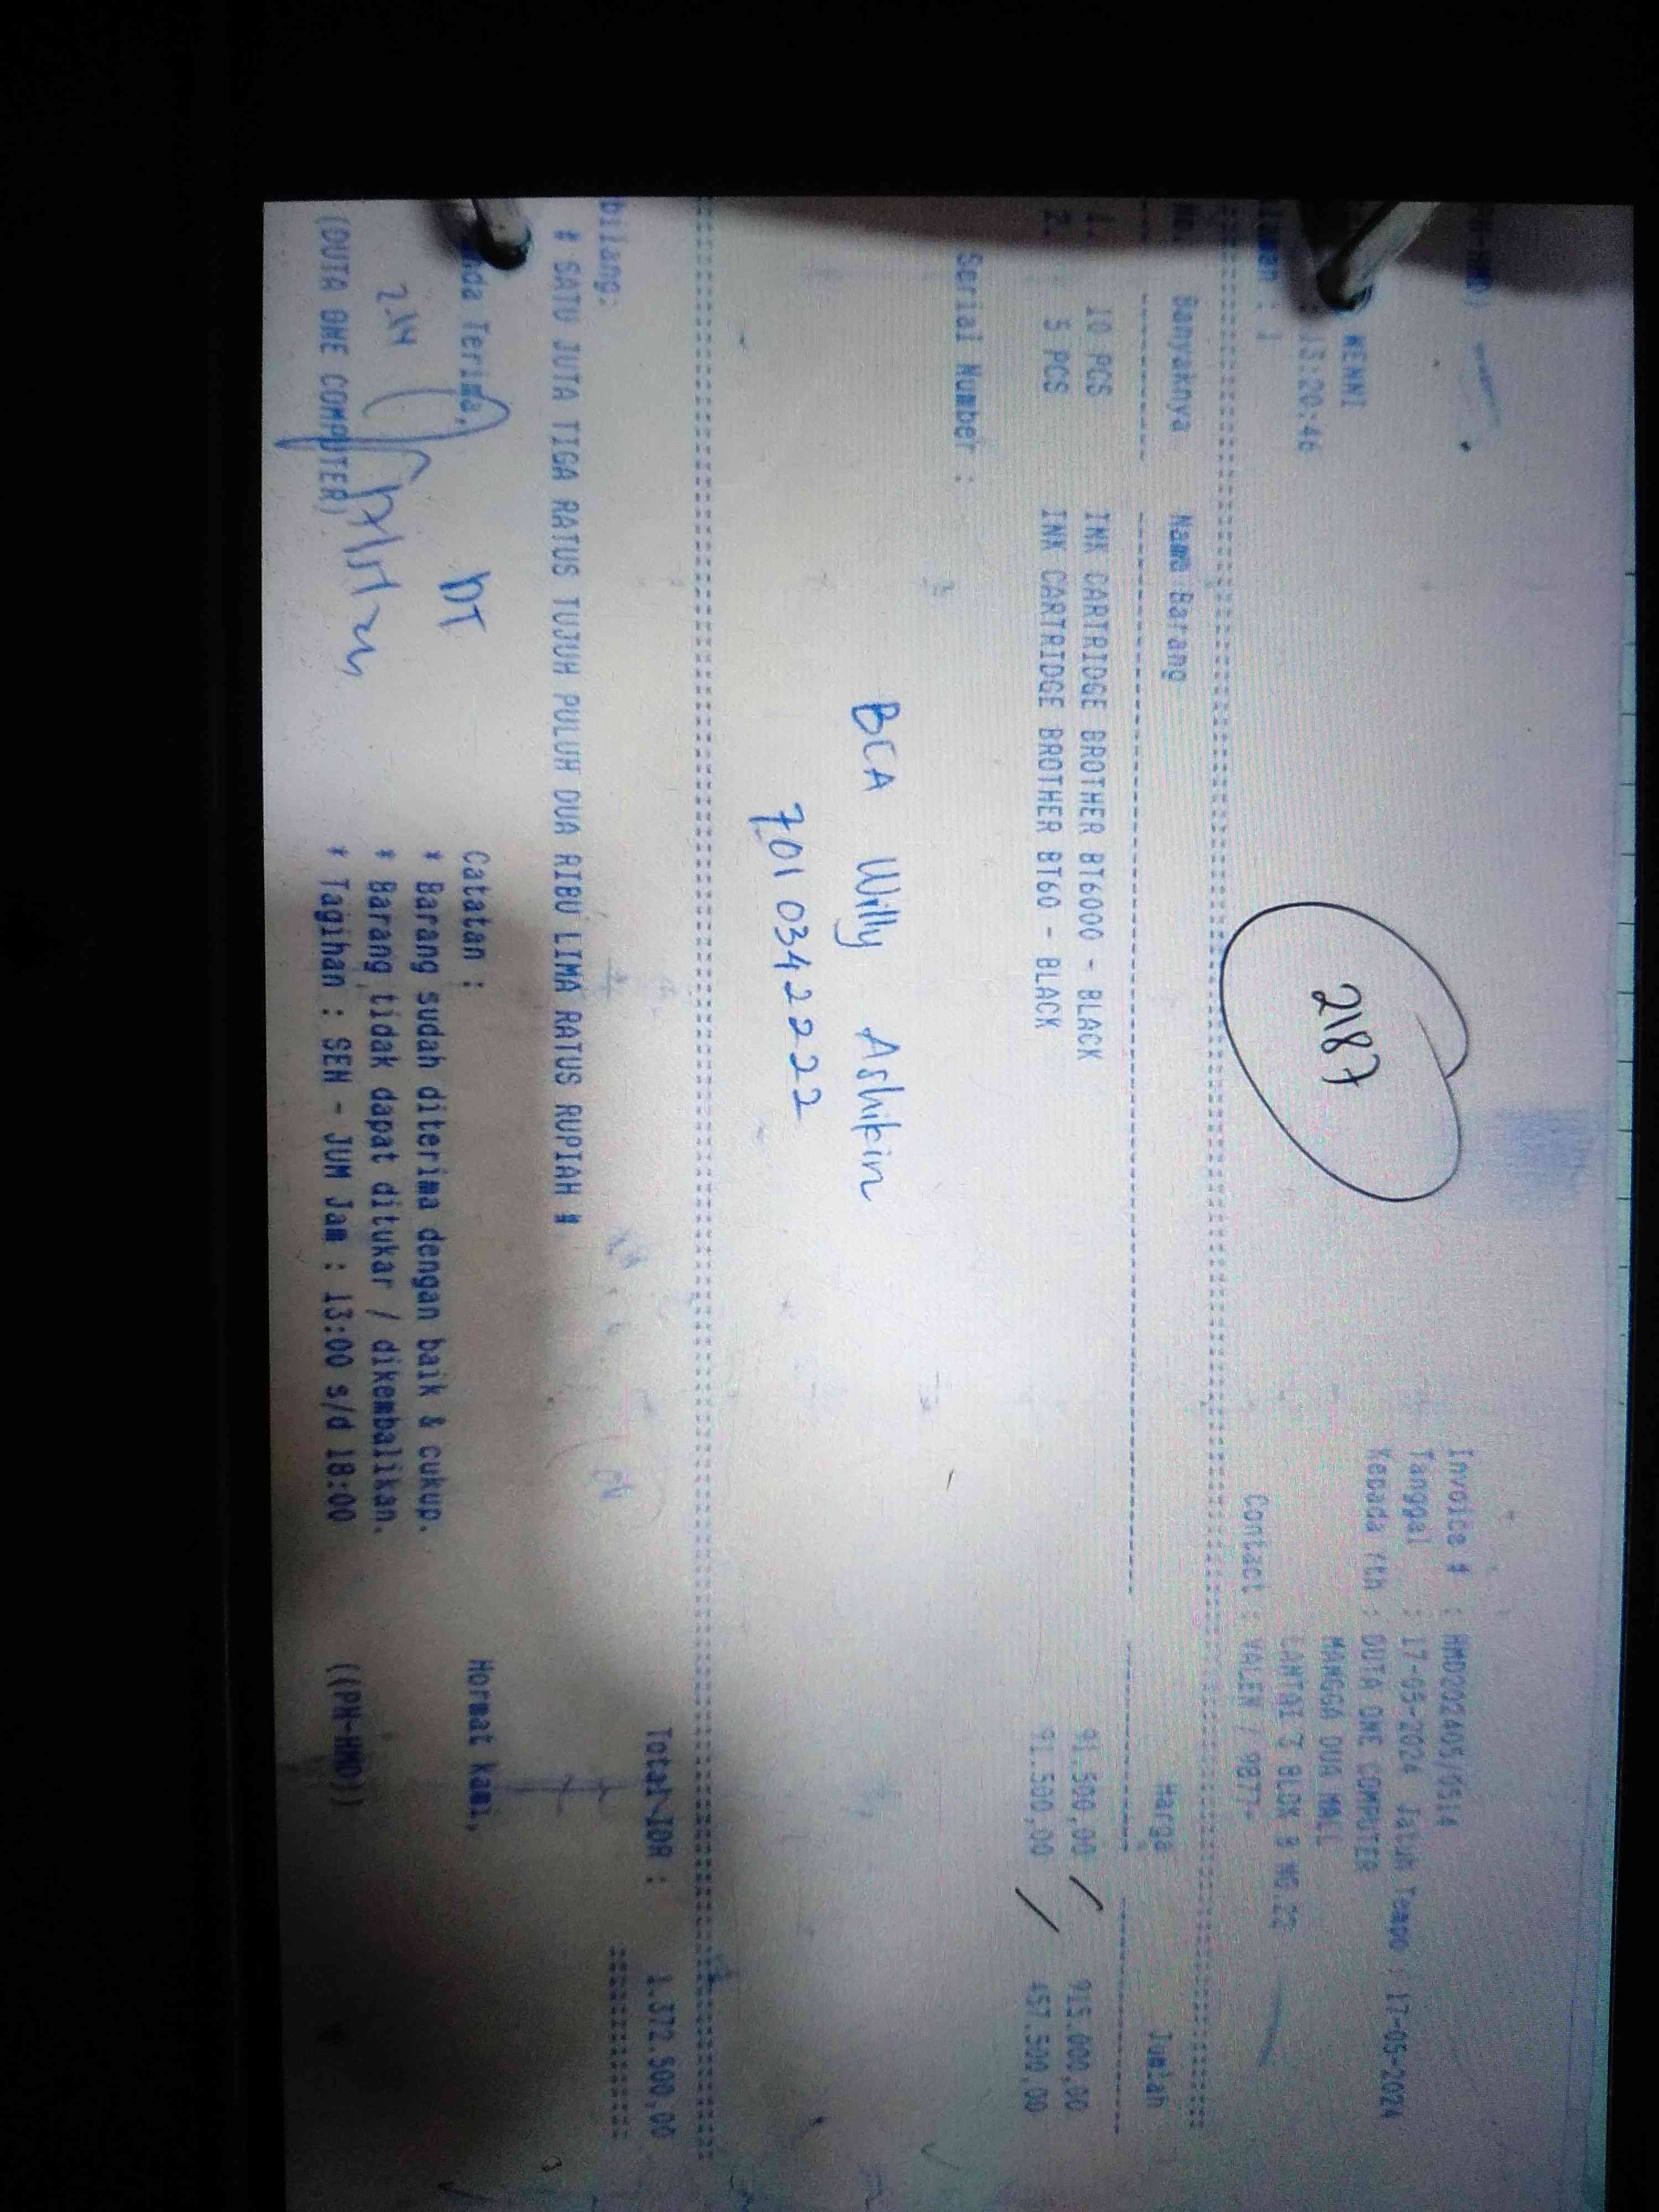 Invoice # : HMD202405/0514
WENNI
Tanggal : 17-05-2024 Jatuh Tempo : 17-05-2024
15:20:46
Kepada Yth : DUTA ONE COMPUTER
MANGGA DUA MALL
: 1
LANTAI 3 BLOK B NO.22
Contact : VALEN / 9877-
2187
No. Banyaknya Nama Barang Harga Jumlah
1. 10 PCS INK CARTRIDGE BROTHER BT6000 - BLACK 91.500,00 915.000,00
2. 5 PCS INK CARTRIDGE BROTHER BT60 - BLACK 91.500,00 457.500,00
Serial Number :
BCA Willy Ashikin
7010342222
Total IDR : 1.372.500,00
bilang:
# SATU JUTA TIGA RATUS TUJUH PULUH DUA RIBU LIMA RATUS RUPIAH #
nda Terima, Catatan : Hormat kami,
DT
* Barang sudah diterima dengan baik & cukup.
* Barang tidak dapat ditukar / dikembalikan.
(DUTA ONE COMPUTER) * Tagihan : SEN - JUM Jam : 13:00 s/d 18:00 ((PN-HMD))